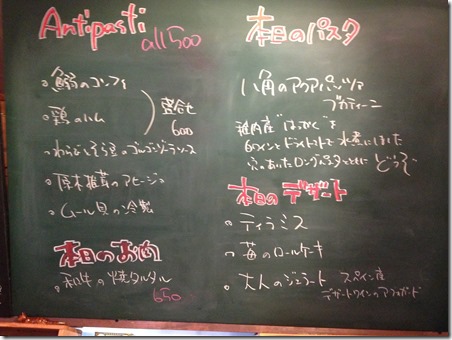 Antipasti
all 500
。鰯のコンフィ
。鶏のハム
盛合せ
600
。わらびとそら豆のゴルゴンゾーラソース
。原木椎茸のアヒージョ
。ムール貝の冷製
本日のお肉
。和牛の焼タルタル
650
本日のパスタ
八角のアクアパッツァ
ブカティーニ
稚内産"はっかく"を
白ワインとドライトマトで水煮にしました
穴のあいたロングパスタとともに どうぞ
本日のデザート
。ティラミス
。苺のロールケーキ
。大人のジェラート スペイン産
デザートワインのアフォガード